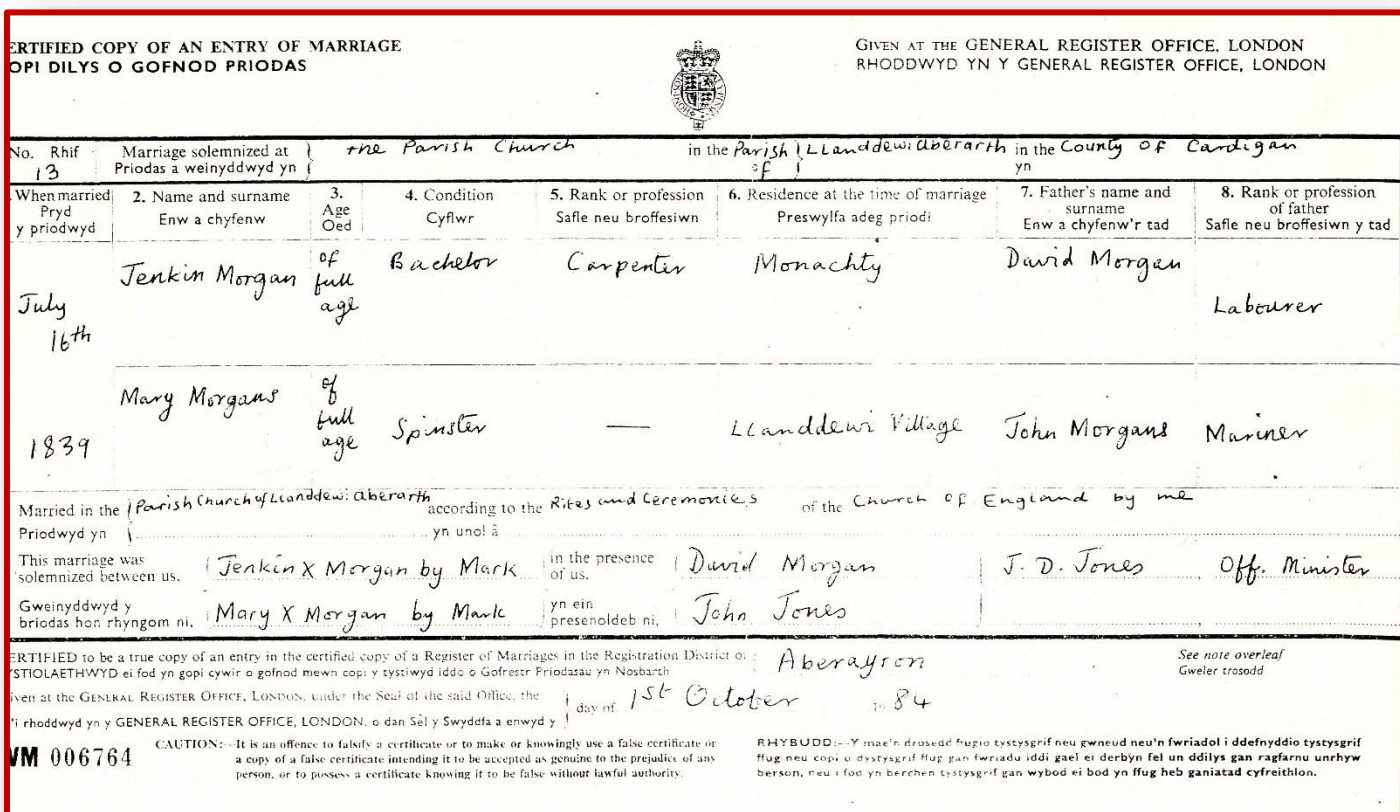 ERTIFIED COPY OF AN ENTRY OF MARRIAGE
OPI DILYS O GOFNOD PRIODAS
GIVEN AT THE GENERAL REGISTER OFFICE, LONDON
RHODDWYD YN Y GENERAL REGISTER OFFICE, LONDON
No. Rhif 13 Marriage solemnized at the Parish Church in the Parish of Llanddewi Aberarth in the County of Cardigan
Priodas a weinyddwyd yn yn
When married Pryd y priodwyd
2. Name and surname Enw a chyfenw
3. Age Oed
4. Condition Cyflwr
5. Rank or profession Safle neu broffesiwn
6. Residence at the time of marriage Preswylfa adeg priodi
7. Father's name and surname Enw a chyfenw'r tad
8. Rank or profession of father Safle neu broffesiwn y tad
July 16th 1839
Jenkin Morgan of full age Bachelor Carpenter Monachty David Morgan Labourer
Mary Morgans of full age Spinster — Llanddewi Village John Morgans Mariner
Married in the Parish Church of Llanddewi Aberarth according to the Rites and Ceremonies of the Church of England by me
Priodwyd yn yn unol â
This marriage was solemnized between us, Jenkin X Morgan by Mark in the presence of us, David Morgan J. D. Jones Off. Minister
Gweinyddwyd y briodas hon rhyngom ni, Mary X Morgan by Mark yn ein presenoldeb ni, John Jones
ERTIFIED to be a true copy of an entry in the certified copy of a Register of Marriages in the Registration District of Aberayron
YSTIOLAETHWYD ei fod yn gopi cywir o gofnod mewn copi y tystiwyd iddo o Gofrestr Priodasau yn Nosbarth
See note overleaf
Gweler trosodd
iven at the GENERAL REGISTER OFFICE, LONDON, under the Seal of the said Office, the 1st day of October 19 84
'i rhoddwyd yn y GENERAL REGISTER OFFICE, LONDON. o dan Sêl y Swyddfa a enwyd y
VM 006764
CAUTION:—It is an offence to falsify a certificate or to make or knowingly use a false certificate or
a copy of a false certificate intending it to be accepted as genuine to the prejudice of any
person, or to possess a certificate knowing it to be false without lawful authority.
RHYBUDD:—Y mae'n drosedd ffugio tystysgrif neu gwneud neu'n fwriadol i ddefnyddio tystysgrif
ffug neu copi o dystysgrif ffug gan fwriadu iddi gael ei derbyn fel un ddilys gan ragfarnu unrhyw
berson, neu i fod yn berchen tystysgrif gan wybod ei bod yn ffug heb ganiatad cyfreithlon.